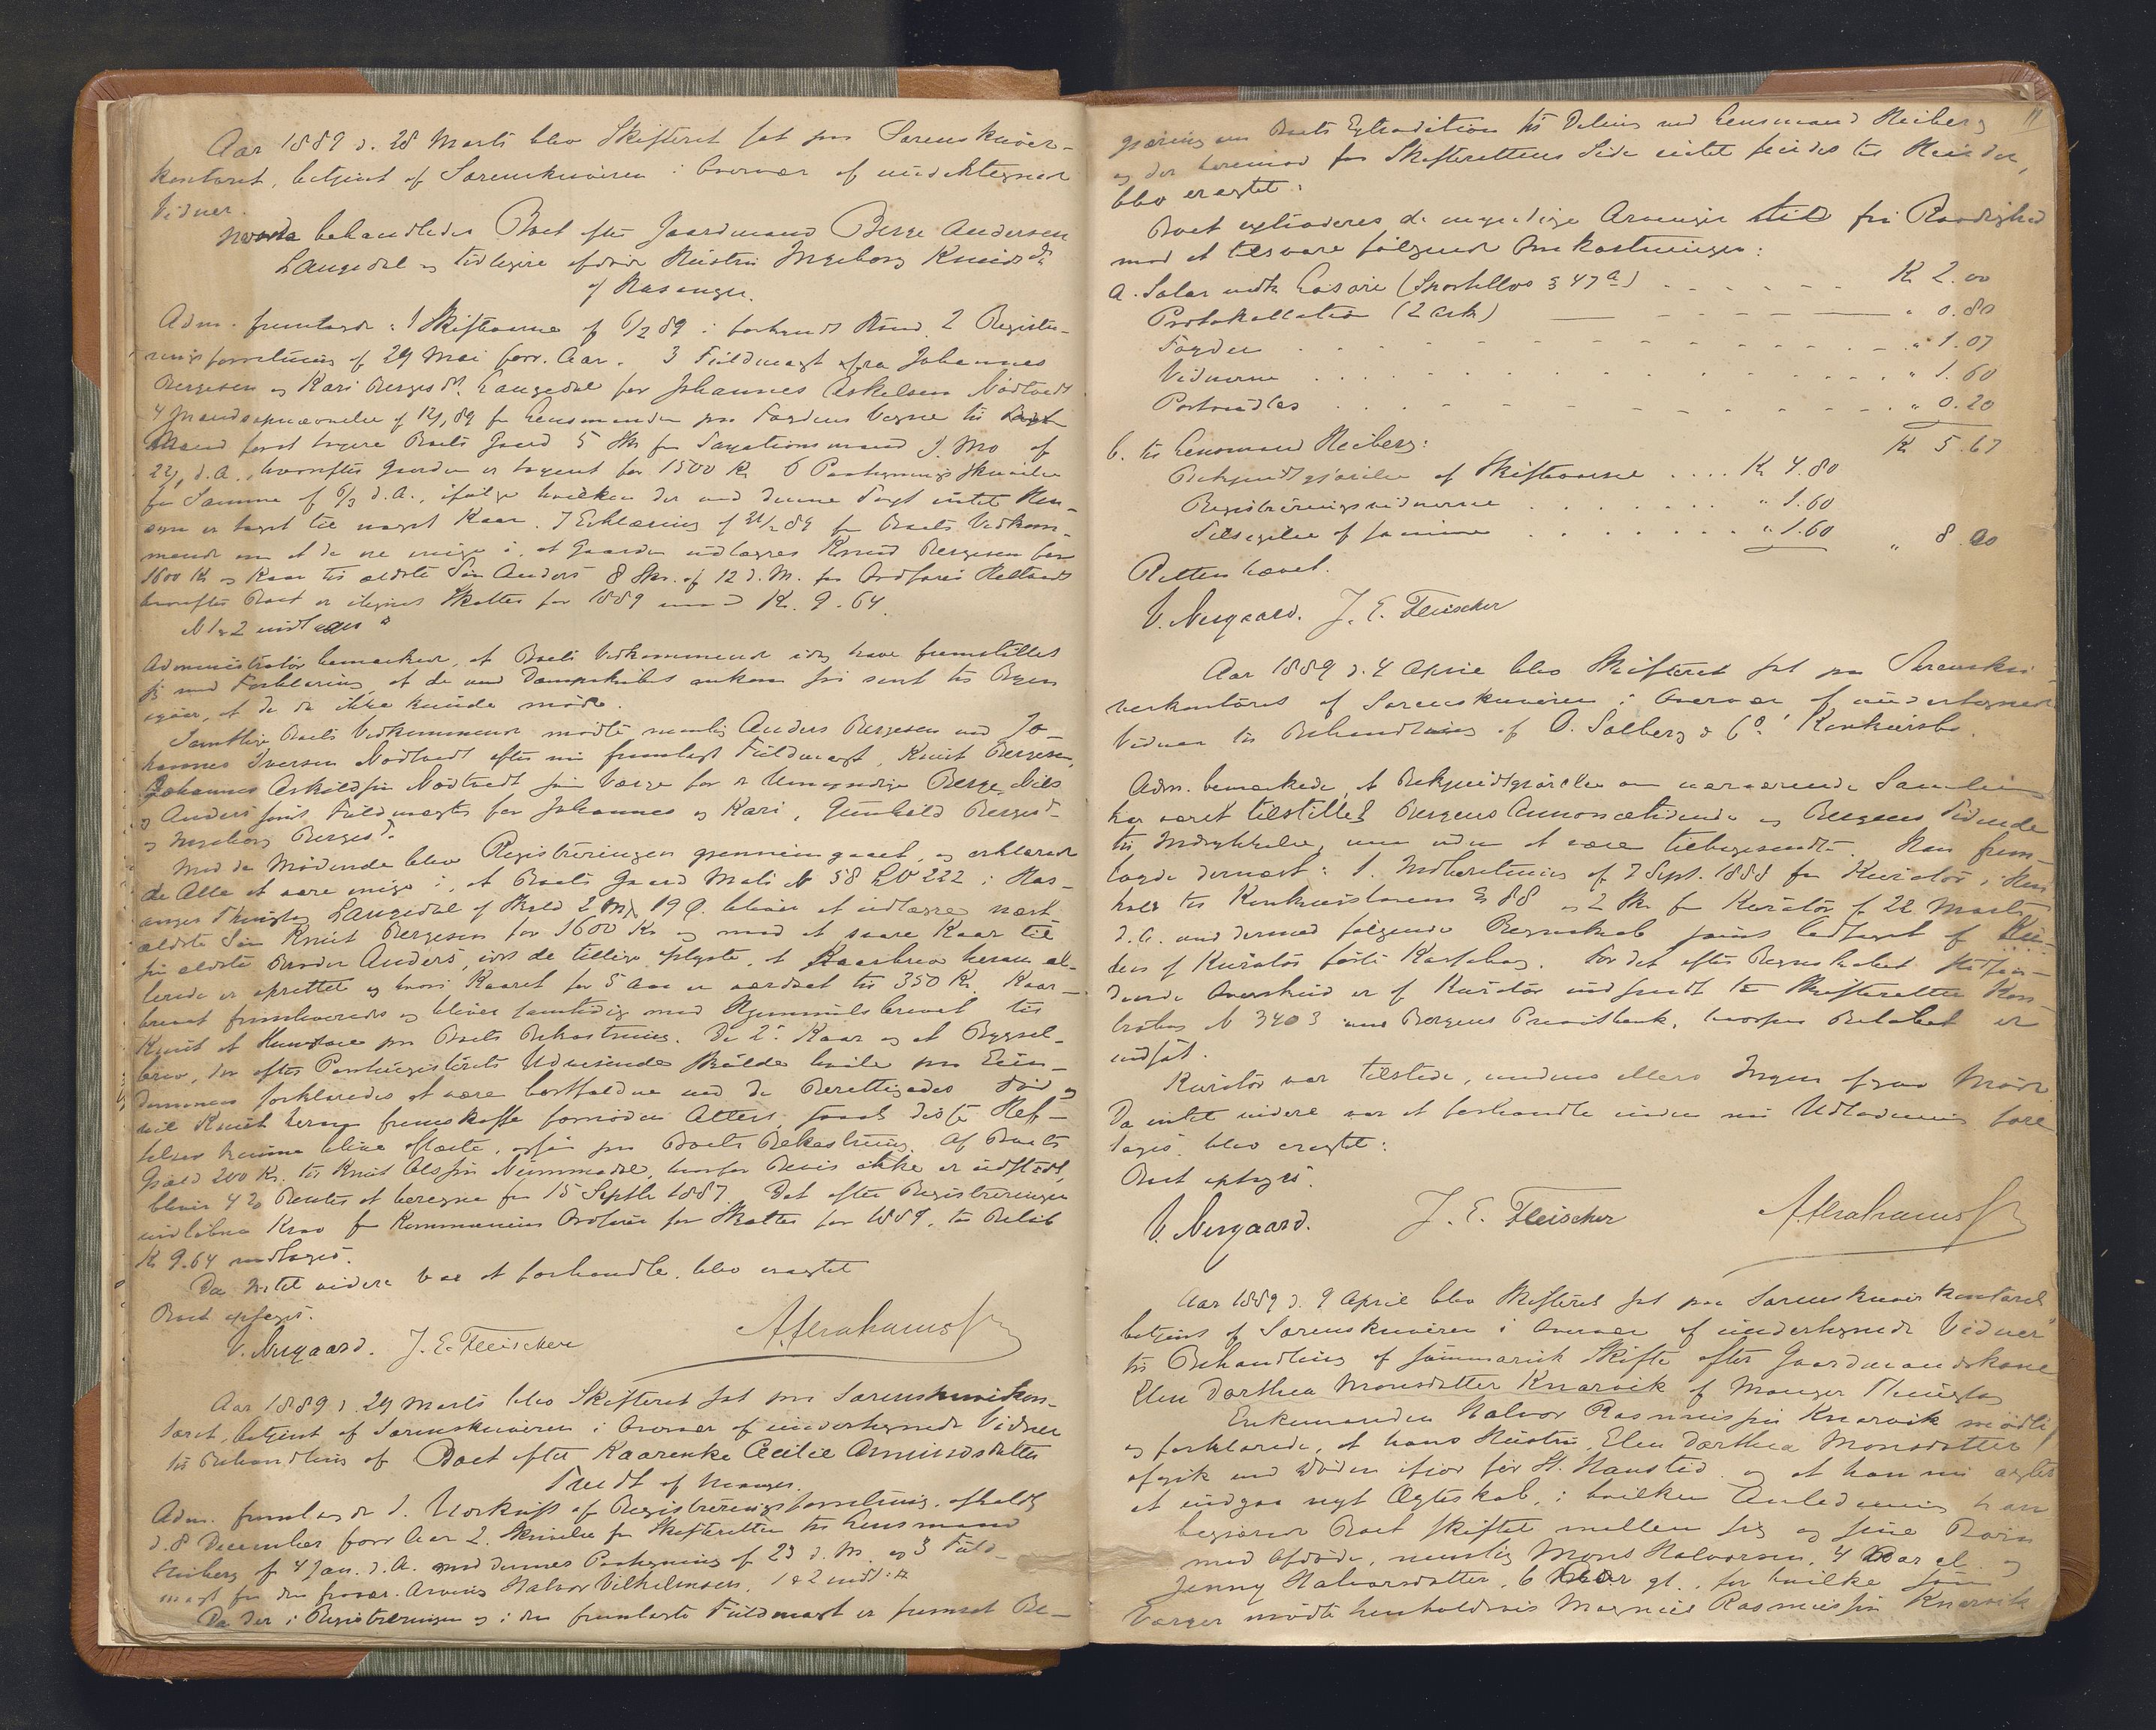 Aar 1889 d. 28 Marts blev Skifteret sat paa Sorenskriver-
kontoret, betjent af Sorenskriveren i Overvær af undertegnede
Vidner.
behandledes Boet efter Gaardmand Berge Andersen
Langedal og tidligere afdøde Hustru Ingeborg Knudsdr
af Hasanger.
Adm. fremlagde: 1 Skiftebrevne af 6/2 89 i forkyndt Stand. 2 Registre-
ringsforretning af 29 Mai forr. Aar. 3 Fuldmagt fra Johannes
Bergesen og Kari Bergesdr. Langedal for Johannes Askelsen Nødtvedt
4 Mandsopnævnelse af 12/1 89 fra Lensmanden paa Fogdens Vegne til
Mænd forat taxere Boets Gaard 5 Skr. fra Taxationsmand J. Mo af
22/1 d.A., hvorefter Gaarden er taxeret for 1500 Kr. 6 Paategningsskrivelse
fra Samme af 6/3 d.A., ifølge hvilken der ved denne Taxt intet Hen-
syn er taget til noget Kaar. 7 Erklæring af 21/2 89 fra Boets Vedkom-
mende om at de ere enige i, at Gaarden udlægges Knud Bergesen for
1600 Kr. og Kaar til ældste Søn Anders 8 Skr. af 12 d. M. fra Ordfører
hvorefter Boet er ilignet Skatter for 1889 med Kr. 9.64.
N 1 & 2 indtages
Administrator bemærkede, at Boets Vedkommende idag have fremstillet
sig med Forklaring, at de med Dampskibet ankom for sent til Byen
igaar, at de da ikke kunde møde.
Samtlige Boets Vedkommende mødte, nemlig Anders Bergesen ved Jo-
hannes Iversen Nødtvedt efter nu fremlagt Fuldmagt, Knut Bergesen,
Johannes Askildsen Nødtvedt som Værge for de Umyndige Berge, Nils
og Anders samt Fuldmægtig for Johannes og Kari, Gunhild Bergesd.
og Ingeborg Bergesd.
Med de Mødende blev Registreringen gjennemgaaet, og erklærede
de Alle at være enige i, at Boets Gaard Matr. N 58 LN 222 i Has-
anger Thinglag Langedal af Skyld 2 M 19 . bliver at udlægge næst
ældste Søn Knut Bergesen for 1600 Kr. og mod at svare Kaar til
sin ældste Broder Anders, idet de tillige oplyste, at Kaarbrev herom al-
lerede er oprettet og hvori Kaaret for 5 Aar er værdsat til 350 Kr. Kaar-
brevet fremleveredes og bliver samtidig med Hjemmelsbrevet til
Knut at thinglæse paa Boets Bekostning. De 2de Kaar og et Byggsel-
brev, der efter Pantregisterets Udvisende skulde hvile paa Eien-
dommen forklaredes at være bortfaldne ved de Berettigedes Død og
vil Knut herom fremskaffe fornøden Attest, saa at disse Hef-
telser kunne blive aflæste, ogsaa paa Boets Bekostning. Af Boets
Gjæld 200 Kr. til Knut Olsen Nummedal, hvorfor Bevis ikke er udstedt,
bliver 4 % Renter at beregne fra 15 Septbr 1887. Det efter Registreringen
indløbne Krav fra Kommunens Ordfører for Skatter for 1889, til Beløb
Kr 9.64 vedtoges.
Da Intet videre var at forhandle, blev eragtet
Boet opsages.
V. Nesgaard. J. E. Fleischer A. Abrahamsen
Aar 1889 d. 29 Marts blev Skifteret sat paa Sorenskriverkon-
toret, betjent af Sorenskriveren i Overvær af undertegnede Vidner
til Behandling af Boet efter Kaarenke Cecilie Amundsdatter
Tvedt af Manger.
Adm. fremlagde 1. Udskrift af Registreringsforretning, afholdt
d. 8 December forr Aar 2. Skrivelse fra Skifteretten til Lensmand
Heiberg af 4 Jan. d. A. med dennes Paategning af 23 d. M. og 3 Fuld-
magt fra den fravær. Arving Halvor Vilhelmsen. 1 & 2 indt:
Da der i Registreringen og i den fremlagte Fuldmagt er fremsat Be-
11
gjæring om Boets Extradition til Deling ved Lensmand Heiberg
og der herimod fra Skifterettens Side intet findes til Hinder,
blev eragtet:
Boet extraderes de myndige Arvinger til fri Raadighed
mod at tilsvare følgende Omkostninger:
a. Salar (Sportellov § 47 a) . . . . . Kr 2.00
Protokollation (2 ark) " 0.80
Fogden . . . . . " 1.07
Vidnerne . . . . . " 1.60
Portoudlæg . . . . . " 0.20
Kr 5.67
b. til Lensmand Heiberg:
Bekjendtgjørelse af Skiftebrevne . . . . Kr 4.80
Registreringsvidnerne . . . . . " 1.60
Tilsigelse af samme . . . . . " 1.60 " 8.00
Retten hævet.
V. Nesgaard. J. E. Fleischer
Aar 1889 d. 4 April blev Skifteret sat paa Sorenskri-
verkontoret af Sorenskriveren i Overvær af undertegnede
Vidner til Behandling af O. Solberg & Co's Konkursbo.
Adm. bemærkede, at Bekjendtgjørelse om nærværende Samling
har været tilstillet Bergens Annoncetidende og Bergens Tidende
til Indrykkelse, men uden at være tilbagesendte. Han frem-
lagde dernæst: 1. Indberetning af 7 Sept. 1888 fra Kurator, i Hen-
hold til Konkurslovens § 88 og 2 Skr. fra Kurator af 22 Marts
d. A. med dermed følgende Regnskab samt ledsaget af
den af Kurator førte Kassebog. For det efter Regnskabet stedfin-
dende Overskud er af Kurator indsendt til Skifteretten Kon-
trabog N 3403 med Bergens Privatbank, hvorpaa Beløbet er
indsat.
Kurator var tilstede, medens ellers Ingen gav Møde.
Da intet videre var at forhandle inden ny Udlodning fore-
toges, blev eragtet:
Boet optages.
V. Nesgaard. J. E. Fleischer A. Abrahamsen
Aar 1889 d. 9 April blev Skifteret sat paa Sorenskriverkontoret
betjent af Sorenskriveren i Overvær af undertegnede Vidner
til Behandling af summarisk Skifte efter Gaardmandskone
Elen Dorthea Monsdatter Knarvik af Manger Thinglag
Enkemanden Halvor Rasmussen Knarvik mødte
og forklarede, at hans Hustru, Elen Dorthea Monsdatter
afgik ved Døden ifjor før St. Hanstid og at han nu agter
at indgaa nyt Ægteskab, i hvilken Anledning han
begjærede Boet skiftet mellem sig og sine Børn
med Afdøde, nemlig Mons Halvorsen, 4 Aar gl. og
Jenny Halvorsdatter, 6 Aar gl., for hvilke som
Værger mødte henholdsvis Magnus Rasmussen Knarvik